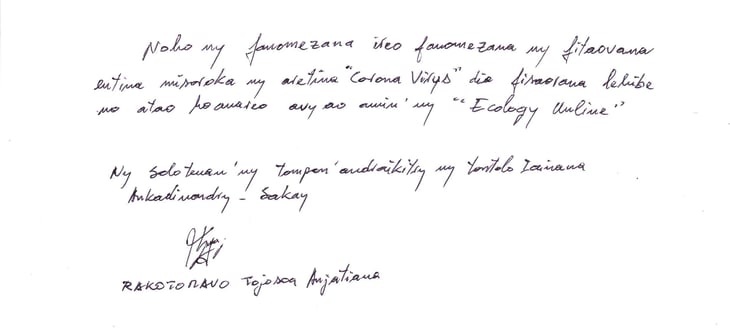 Noho ny fanomezana ireo fanomezana ny fitaovana
entina misoroka ny aretina "Corona Virus" dia fisaorana lehibe
no atao ho anareo avy ao amin' ny "Ecology Online"
Ny solotenan' ny tompon' andraikitry ny tontolo Iainana
Ankadinondry - Sakay
RAKOTOMAVO Tojosoa Anjatiana